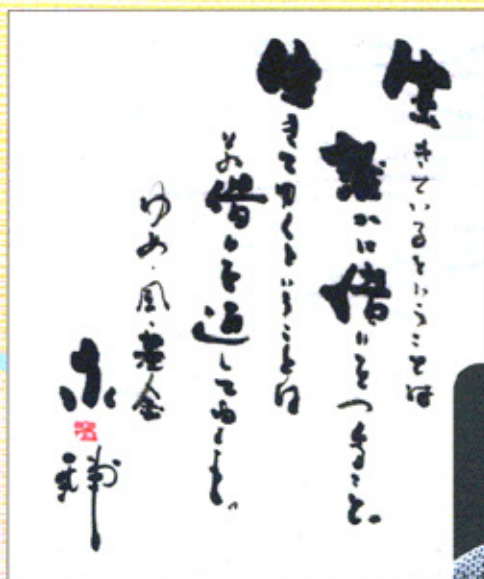 生きているということは
誰かに借りをつくること。
生きてゆくということは
その借りを返してゆくこと。
ゆめ・風・基金
永
六
輔